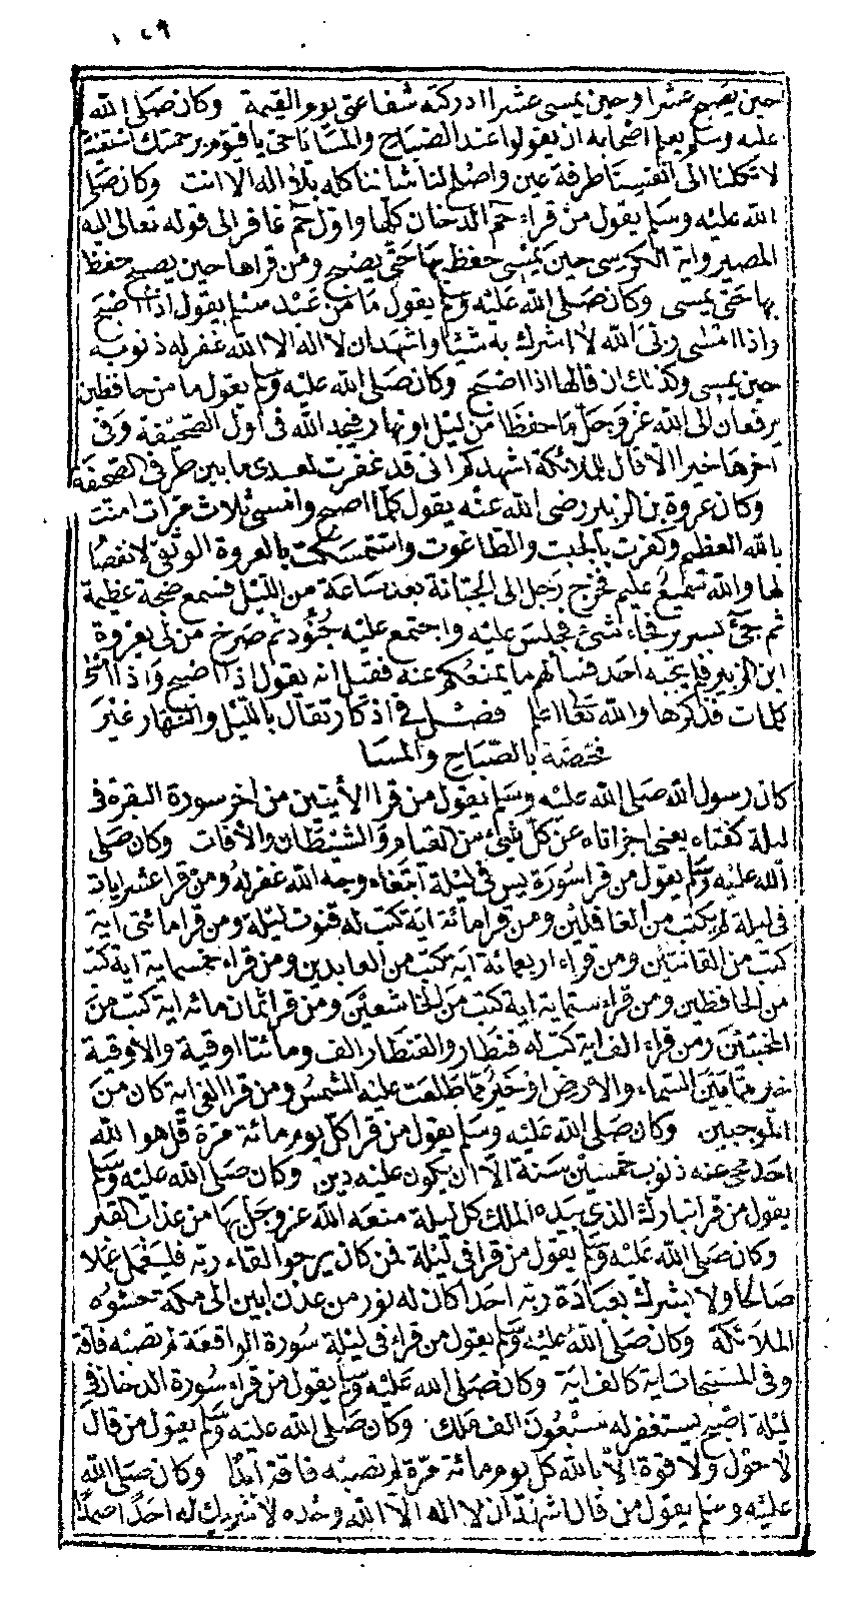 ١٤٩
حين يصبح عشرا وحين يمسى عشرا ادركته شفاعتى يوم القيمة وكان صلى الله
عليه وسلم يعلم اصحابه ان يقولوا عند الصباح والمسا ياحى ياقيوم برحمتك استغيث
لا تكلنا الى انفسنا طرفة عين واصلح لنا شاننا كله بلا اله الا انت وكان صلى
الله عليه وسلم يقول من قراء حم الدخان كلها واول حم غافر الى قوله تعالى اليه
المصير واية الكرسى حين يمسى حفظ بها حتى يصبح ومن قراها حين يصبح حفظ
بها حتى يمسى وكان صلى الله عليه وسلم يقول ما من عبد مسلم يقول اذا اصبح
واذا امسى ربى الله لا اشرك به شيئا واشهد ان لا اله الا الله غفر له ذنوبه
حين يمسى وكذلك ان قالها اذا اصبح وكان صلى الله عليه وسلم يقول ما من حافظين
يرفعان الى الله عز وجل ما حفظا من ليل او نهار فيجد الله فى اول الصحيفة وفى
اخرها خيرا الا قال للملائكة اشهدكم انى قد غفرت لعبدى ما بين طرفى الصحيفة
وكان عروة بن الزبير رضى الله عنه يقول كلما اصبح وامسى ثلاث مرات امنت
بالله العظيم وكفرت بالجبت والطاغوت واستمسكت بالعروة الوثقى لا انفصام
لها والله سميع عليم فخرج رجل الى الجبانة بعد ساعة من الليل فسمع ضجة عظيمة
ثم جئ بسرير فجاء شئ فجلس عليه واجتمع عليه جنود ثم صرخ من لى بعروة
ابن الزبير فلم يجبه احد فسالهم ما يمنعكم عنه فقيل انه يقول اذا اصبح واذا امسى
كلمات فذكرها والله تعالى اعلم فصل فى اذكار تقال بالليل والنهار غير
مختصة بالصباح والمسا
كان رسول الله صلى الله عليه وسلم يقول من قرا الأيتين من اخر سورة البقرة فى
ليلة كفتاه يعنى اجزاتاه عن كل شىء من القيام والشيطان والأفات وكان صلى
الله عليه وسلم يقول من قرا سورة يس فى ليلة ابتغاء وجه الله غفر له ومن قرا عشر ايات
فى ليلة لم يكتب من الغافلين ومن قرا مائة اية كتب له قنوت ليلة ومن قرا مائتى اية
كتب من القانتين ومن قراء اربعمائة اية كتب من العابدين ومن قراء خمسماية اية كتب
من الحافظين ومن قراء ستماية اية كتب من الخاشعين ومن قرا ثمان مائه اية كتب من
المخبتين ومن قراء الف اية كتب له قنطار والقنطار الف ومائتا اوقية والأوقية
خير مما بين السماء والأرض او خير مما طلعت عليه الشمس ومن قرا الفى اية كان من
الموجبين وكان صلى الله عليه وسلم يقول من قرا كل يوم مائة مرة قل هو الله
احد محى عنه ذنوب خمسين سنة الا ان يكون عليه دين وكان صلى الله عليه وسلم
يقول من قرا تبارك الذى بيده الملك كل ليلة منعه الله عز وجل بها من عذاب القبر
وكان صلى الله عليه وسلم يقول من قرا فى ليلة فمن كان يرجوا لقاء ربه فليعمل عملا
صالحا ولا يشرك بعبادة ربه احدا كان له نور من عدن ابين الى مكة حشوه
الملائكة وكان صلى الله عليه وسلم يقول من قراء فى ليلة سورة الواقعة لم تصبه فاقة
وفى المسبحات اية كالف اية وكان صلى الله عليه وسلم يقول من قراء سورة الدخان فى
ليلة اصبح يستغفر له سبعون الف ملك وكان صلى الله عليه وسلم يقول من قال
لا حول ولا قوة الا بالله كل يوم مائة مرة لم تصبه فاقة ابدا وكان صلى الله
عليه وسلم يقول من قال اشهد ان لا اله الا الله وحده لا شريك له احدا صمدا